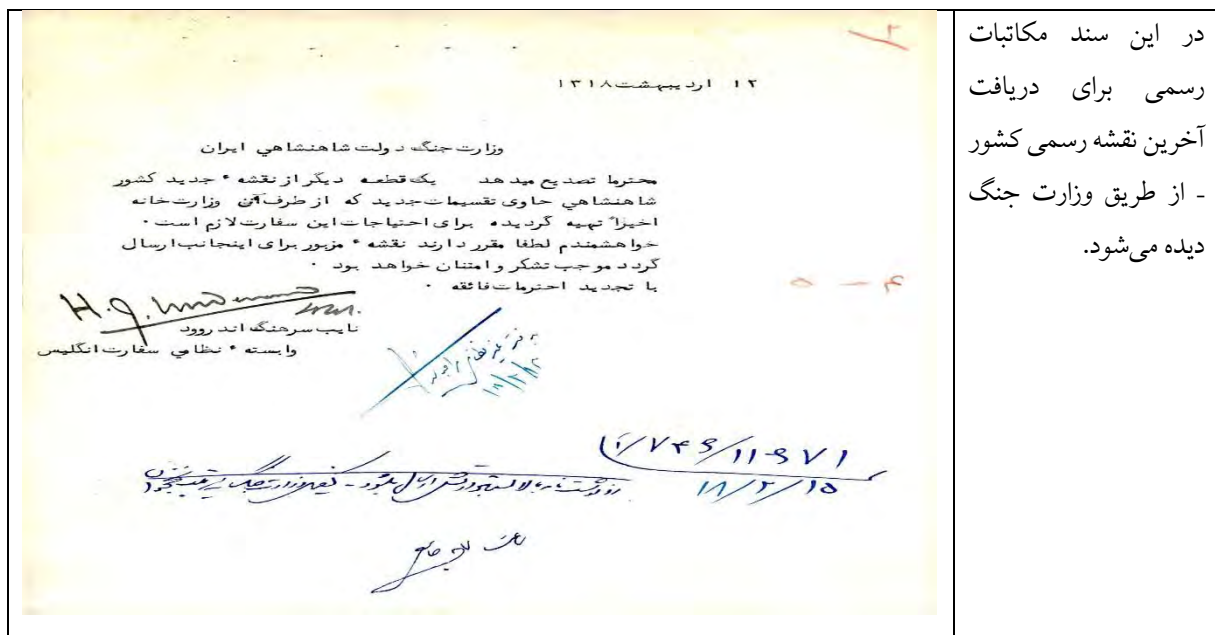 در این سند مکاتبات
رسمی برای دریافت
آخرین نقشه رسمی کشور
ـ از طریق وزارت جنگ
دیده می‌شود.
۲
۱۲ اردیبهشت ۱۳۱۸
وزارت جنگ دولت شاهنشاهي ایران
محترما تصدیع میدهد یک قطعه دیگر از نقشه ٔ جدید کشور
شاهنشاهي حاوی تقسیمات جدید که از طرف آن وزارت خانه
اخیراً تهیه گردیده برای احتیاجات این سفارت لازم است ٠
خواهشمندم لطفا مقرر دارند نقشه ٔ مزبور برای اینجانب ارسال
گردد موجب تشکر و امتنان خواهد بود ٠
با تجدید احترمات فائقه ٠
۴ — ۵
H. G.
نایب سرهنگ اندروود
وابسته ٔ نظامي سفارت انگلیس
۱۸/۲/۱۵